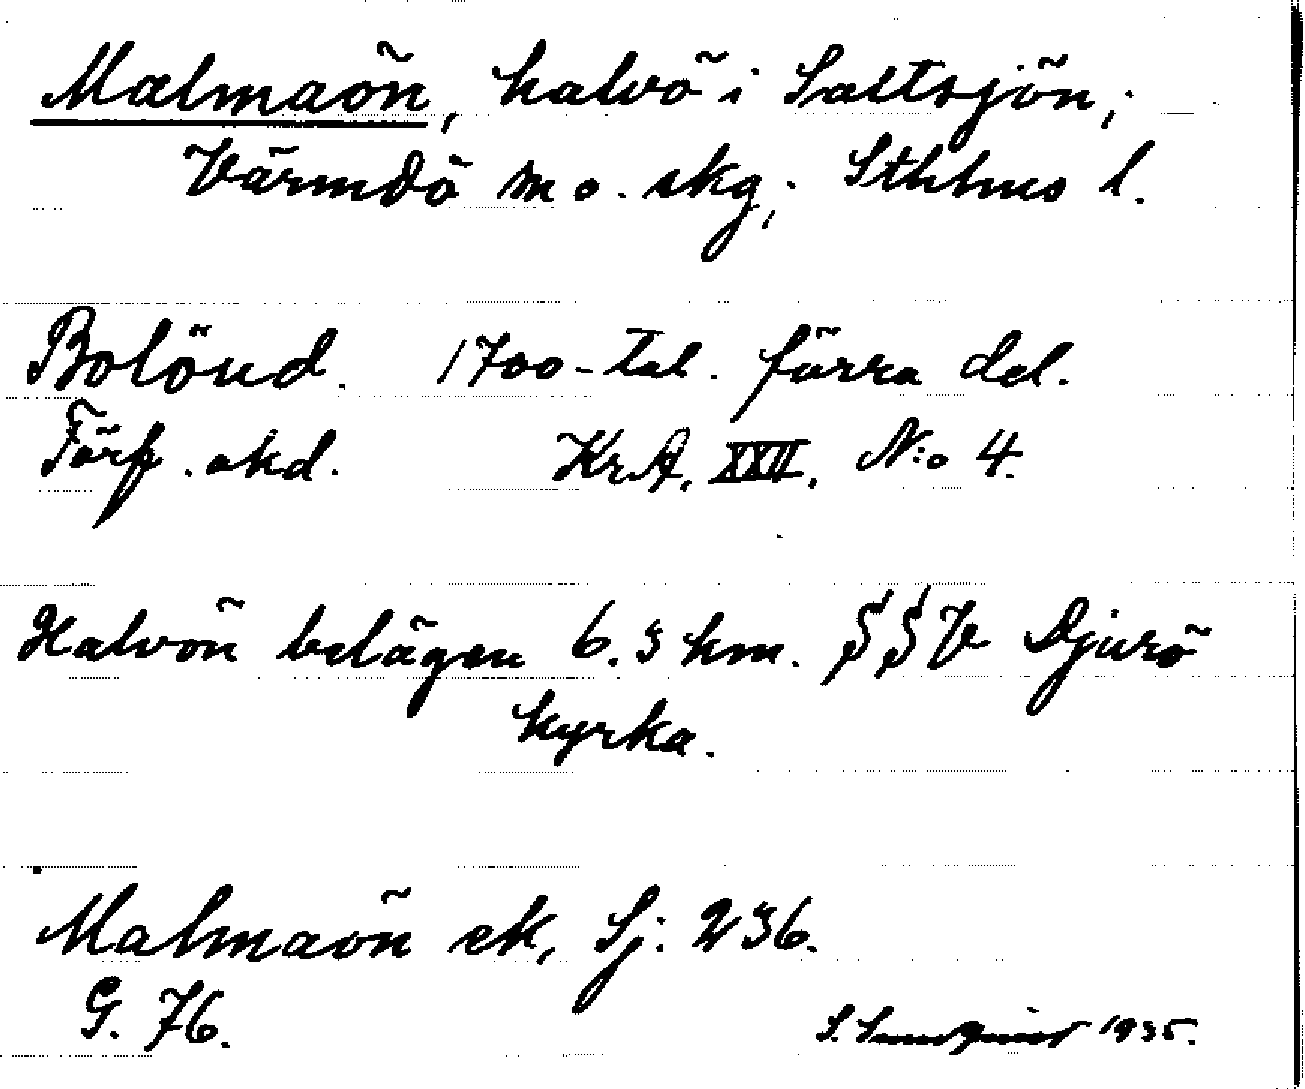 Malmaön, halvö i Saltsjön,
Värmdö m o. skg; Sthlms l.
Bolönd. 1700-tal. förra del.
Förf. okd. KrA. XXII. N:o 4.
Halvön belägen 6.3 km. SSV Djurö
kyrka.
Malmaön ek, Sj: 236.
G. 76.
S. 1935.